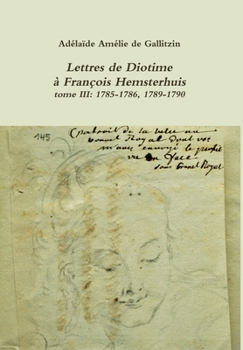 Adélaïde Amélie de Gallitzin
Lettres de Diotime
à François Hemsterhuis
tome III: 1785-1786, 1789-1790
145
portrait de la bete au
bonnet Royal dont vous
m'aves envoyé le profil
vu en face
sans bonnet Royal